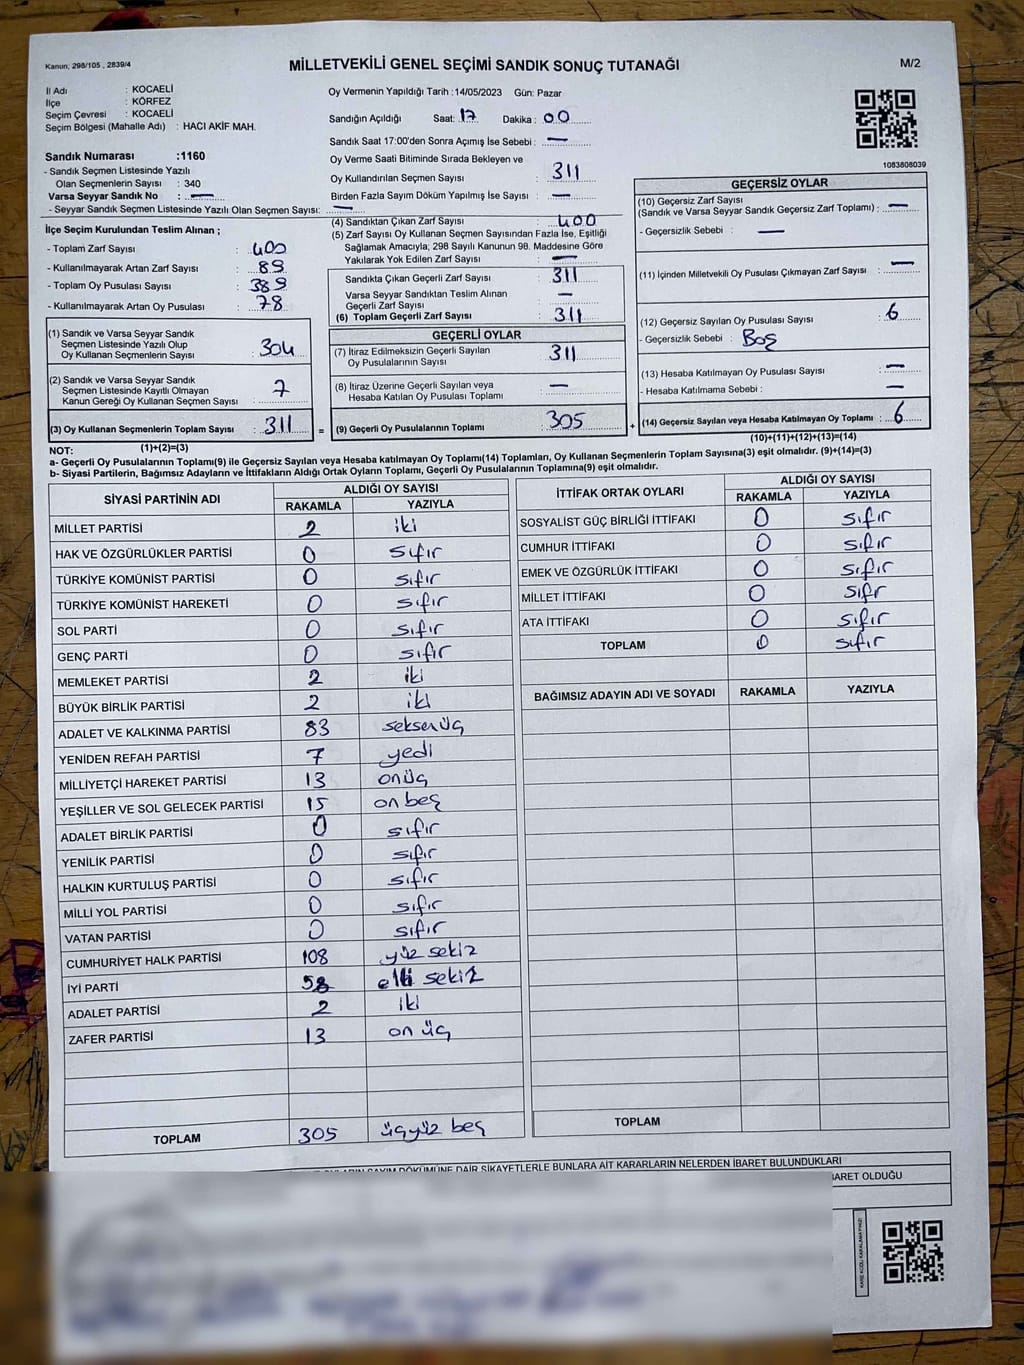 Kanun, 298/105 , 2839/4
MİLLETVEKİLİ GENEL SEÇİMİ SANDIK SONUÇ TUTANAĞI
M/2
İl Adı : KOCAELİ
İlçe : KÖRFEZ
Seçim Çevresi : KOCAELİ
Seçim Bölgesi (Mahalle Adı) : HACI AKİF MAH.
Sandık Numarası :1160
- Sandık Seçmen Listesinde Yazılı
Olan Seçmenlerin Sayısı : 340
Varsa Seyyar Sandık No : —
- Seyyar Sandık Seçmen Listesinde Yazılı Olan Seçmen Sayısı: —
İlçe Seçim Kurulundan Teslim Alınan ;
- Toplam Zarf Sayısı : 400
- Kullanılmayarak Artan Zarf Sayısı : 89
- Toplam Oy Pusulası Sayısı : 389
- Kullanılmayarak Artan Oy Pusulası : 78
(1) Sandık ve Varsa Seyyar Sandık
Seçmen Listesinde Yazılı Olup
Oy Kullanan Seçmenlerin Sayısı : 304
(2) Sandık ve Varsa Seyyar Sandık
Seçmen Listesinde Kayıtlı Olmayan
Kanun Gereği Oy Kullanan Seçmen Sayısı : 7
(3) Oy Kullanan Seçmenlerin Toplam Sayısı : 311
Oy Vermenin Yapıldığı Tarih :14/05/2023 Gün: Pazar
Sandığın Açıldığı Saat: 17 Dakika : 00
Sandık Saat 17:00'den Sonra Açımış İse Sebebi : —
Oy Verme Saati Bitiminde Sırada Bekleyen ve
Oy Kullandırılan Seçmen Sayısı : 311
Birden Fazla Sayım Döküm Yapılmış İse Sayısı : —
(4) Sandıktan Çıkan Zarf Sayısı : 400
(5) Zarf Sayısı Oy Kullanan Seçmen Sayısından Fazla İse, Eşitliği
Sağlamak Amacıyla; 298 Sayılı Kanunun 98. Maddesine Göre
Yakılarak Yok Edilen Zarf Sayısı : —
Sandıkta Çıkan Geçerli Zarf Sayısı : 311
Varsa Seyyar Sandıktan Teslim Alınan
Geçerli Zarf Sayısı : —
(6) Toplam Geçerli Zarf Sayısı : 311
GEÇERLİ OYLAR
(7) İtiraz Edilmeksizin Geçerli Sayılan
Oy Pusulalarının Sayısı : 311
(8) İtiraz Üzerine Geçerli Sayılan veya
Hesaba Katılan Oy Pusulası Toplamı : —
= (9) Geçerli Oy Pusulalarının Toplamı : 305
1083808039
GEÇERSİZ OYLAR
(10) Geçersiz Zarf Sayısı
(Sandık ve Varsa Seyyar Sandık Geçersiz Zarf Toplamı) : —
- Geçersizlik Sebebi : —
(11) İçinden Milletvekili Oy Pusulası Çıkmayan Zarf Sayısı : —
(12) Geçersiz Sayılan Oy Pusulası Sayısı : 6
- Geçersizlik Sebebi : Boş
(13) Hesaba Katılmayan Oy Pusulası Sayısı : —
- Hesaba Katılmama Sebebi : —
+ (14) Geçersiz Sayılan veya Hesaba Katılmayan Oy Toplamı : 6
NOT: (1)+(2)=(3)
(10)+(11)+(12)+(13)=(14)
a- Geçerli Oy Pusulalarının Toplamı(9) ile Geçersiz Sayılan veya Hesaba Katılmayan Oy Toplamı(14) Toplamları, Oy Kullanan Seçmenlerin Toplam Sayısına(3) eşit olmalıdır. (9)+(14)=(3)
b- Siyasi Partilerin, Bağımsız Adayların ve İttifakların Aldığı Ortak Oyların Toplamı, Geçerli Oy Pusulalarının Toplamına(9) eşit olmalıdır.
SİYASİ PARTİNİN ADI ALDIĞI OY SAYISI
RAKAMLA YAZIYLA
MİLLET PARTİSİ 2 iki
HAK VE ÖZGÜRLÜKLER PARTİSİ 0 sıfır
TÜRKİYE KOMÜNİST PARTİSİ 0 sıfır
TÜRKİYE KOMÜNİST HAREKETİ 0 sıfır
SOL PARTİ 0 sıfır
GENÇ PARTİ 0 sıfır
MEMLEKET PARTİSİ 2 iki
BÜYÜK BİRLİK PARTİSİ 2 iki
ADALET VE KALKINMA PARTİSİ 83 seksenüç
YENİDEN REFAH PARTİSİ 7 yedi
MİLLİYETÇİ HAREKET PARTİSİ 13 onüç
YEŞİLLER VE SOL GELECEK PARTİSİ 15 on beş
ADALET BİRLİK PARTİSİ 0 sıfır
YENİLİK PARTİSİ 0 sıfır
HALKIN KURTULUŞ PARTİSİ 0 sıfır
MİLLİ YOL PARTİSİ 0 sıfır
VATAN PARTİSİ 0 sıfır
CUMHURİYET HALK PARTİSİ 108 yüz sekiz
İYİ PARTİ 58 elli sekiz
ADALET PARTİSİ 2 iki
ZAFER PARTİSİ 13 on üç
TOPLAM 305 üçyüz beş
İTTİFAK ORTAK OYLARI ALDIĞI OY SAYISI
RAKAMLA YAZIYLA
SOSYALİST GÜÇ BİRLİĞİ İTTİFAKI 0 sıfır
CUMHUR İTTİFAKI 0 sıfır
EMEK VE ÖZGÜRLÜK İTTİFAKI 0 sıfır
MİLLET İTTİFAKI 0 sıfr
ATA İTTİFAKI 0 sıfır
TOPLAM 0 sıfır
BAĞIMSIZ ADAYIN ADI VE SOYADI RAKAMLA YAZIYLA
TOPLAM
SAYIM DÖKÜMÜNE DAİR ŞİKAYETLERLE BUNLARA AİT KARARLARIN NELERDEN İBARET BULUNDUKLARI
BARET OLDUĞU
KARE KODU KARALAMAYINIZ!